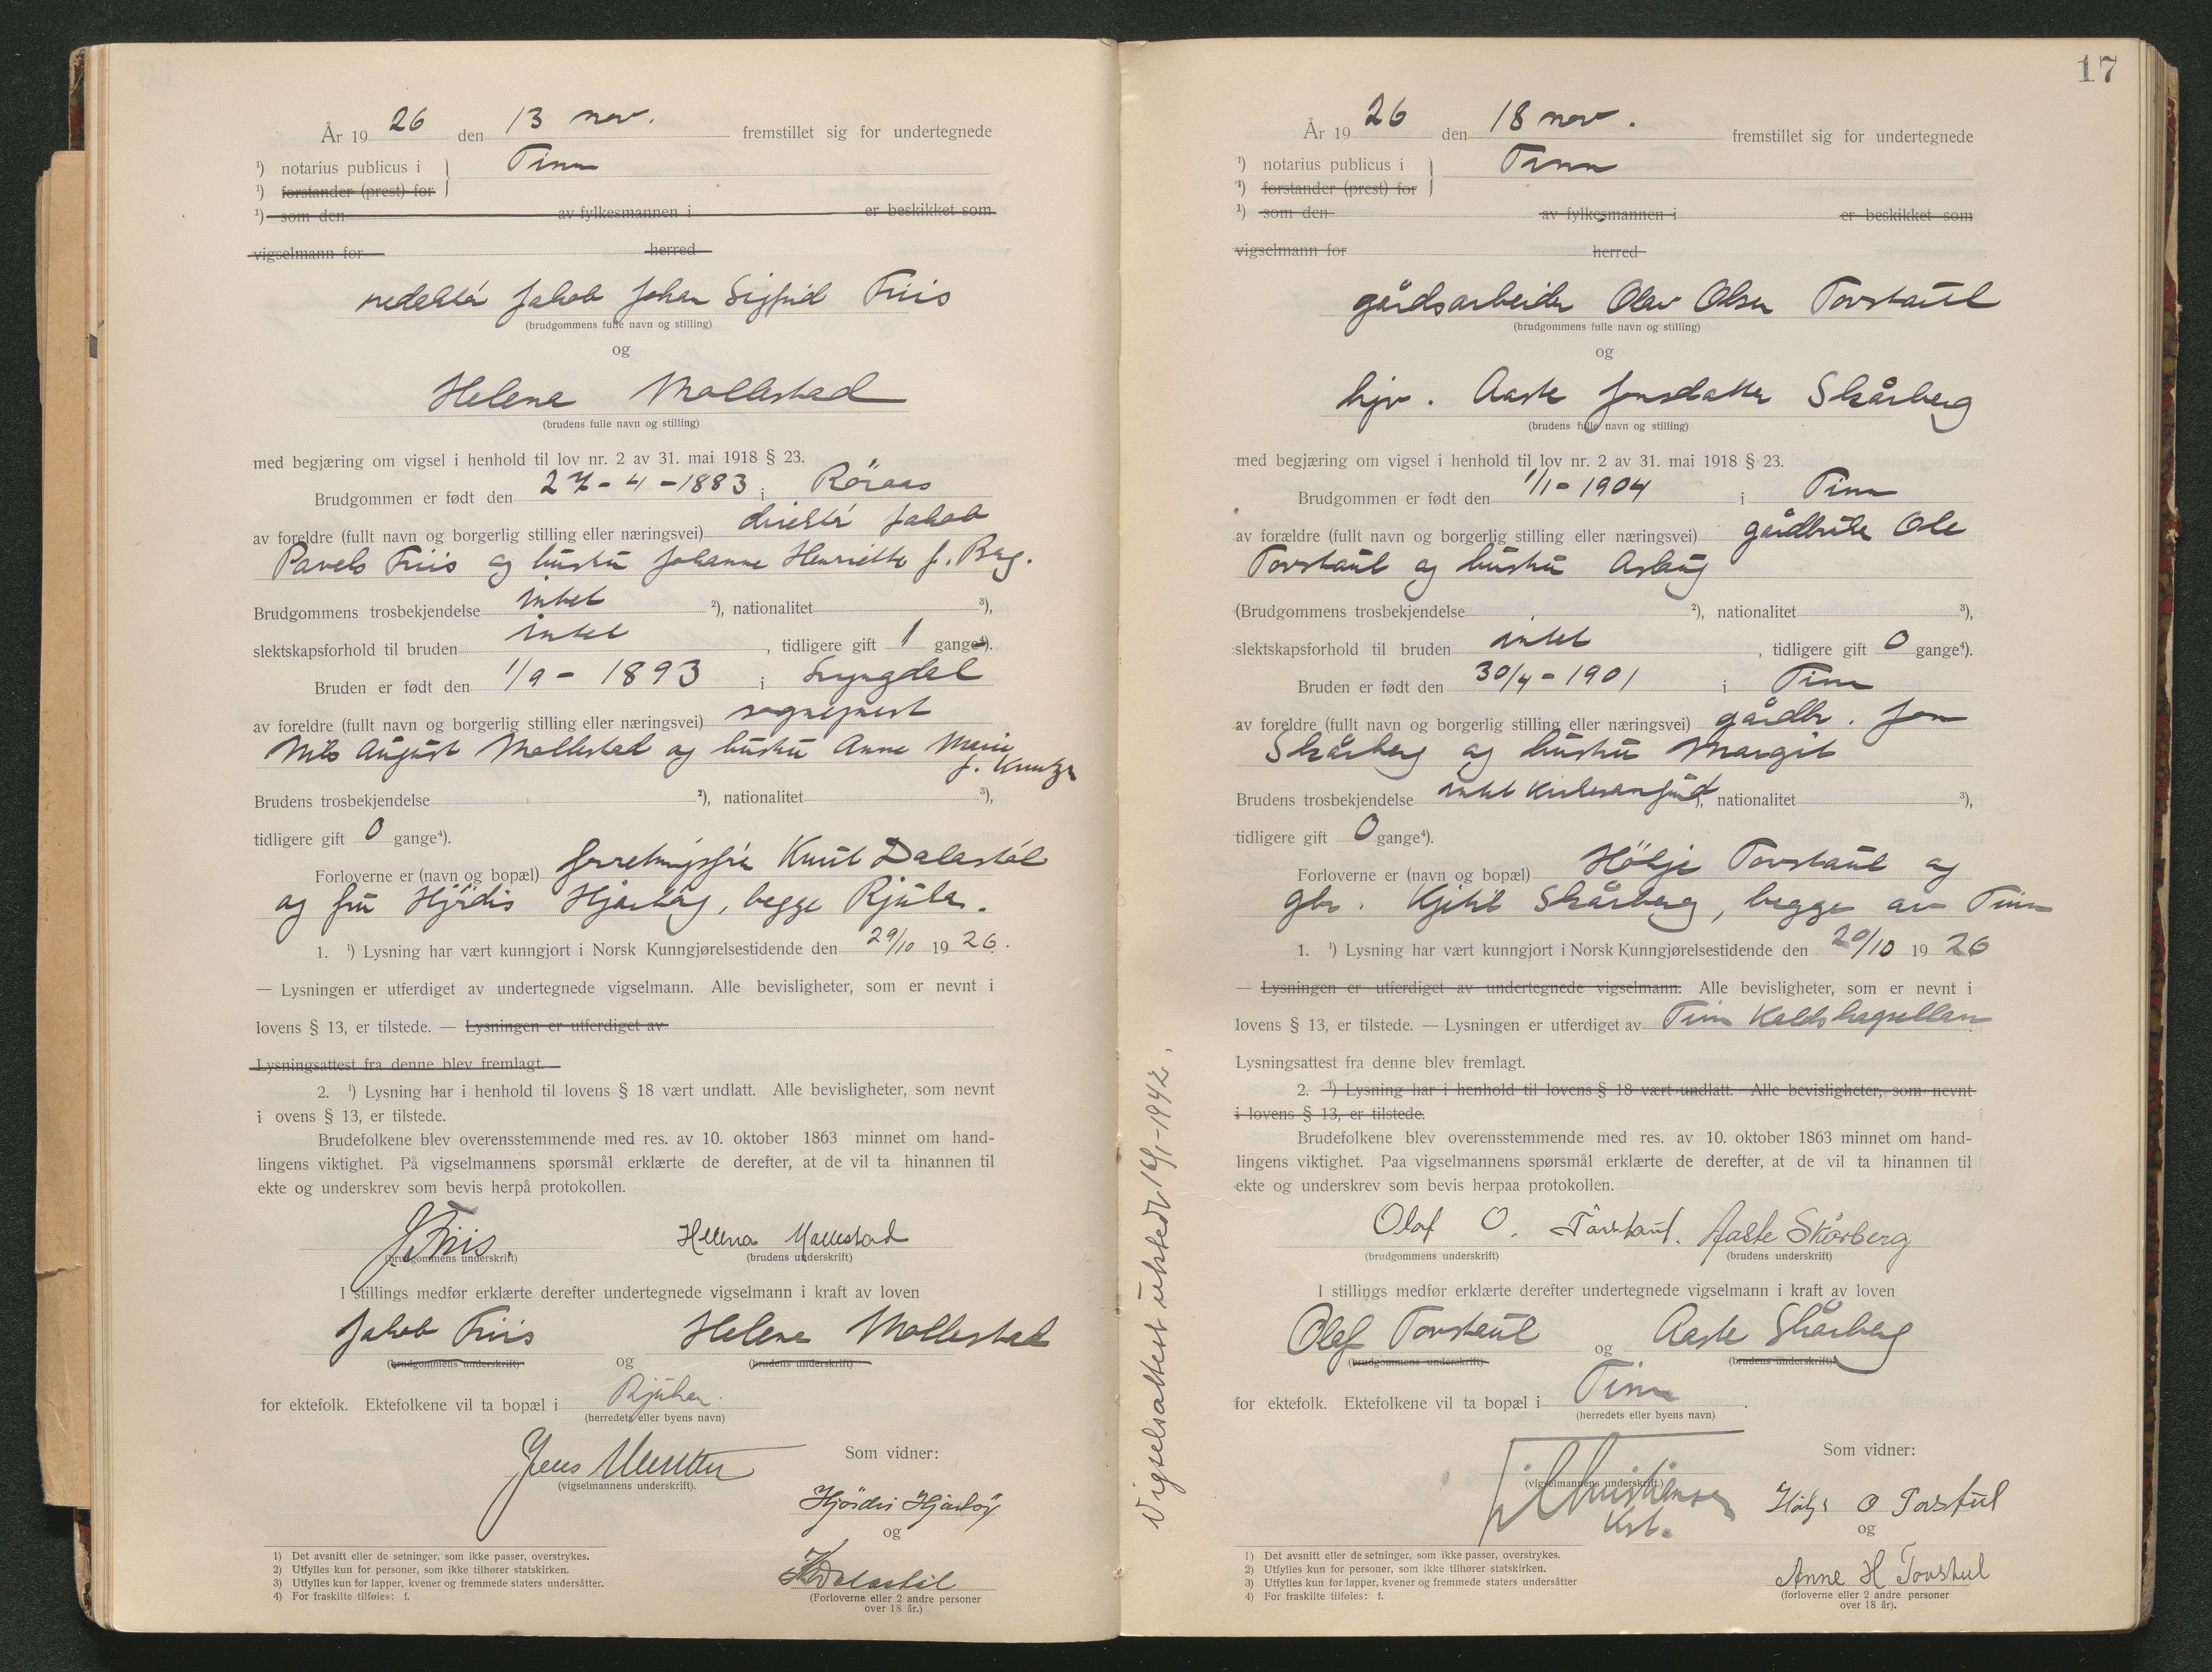 År 19 26 den 13 nov. fremstillet sig for undertegnede
¹) notarius publicus i } Tinn
¹) forstander (prest) for
¹) som den av fylkesmannen i er beskikket som
vigselmann for herred
redaktør Jakob Johan Sigfrid Friis
(brudgommens fulle navn og stilling)
og
Helena Mollestad
(brudens fulle navn og stilling)
med begjæring om vigsel i henhold til lov nr. 2 av 31. mai 1918 § 23.
Brudgommen er født den 27-4-1883 i Röraas
av foreldre (fullt navn og borgerlig stilling eller næringsvei) direktør Jakob
Pavels Friis og hustru Johanne Henriette f.
Brudgommens trosbekjendelse intet ²), nationalitet ³),
slektskapsforhold til bruden intet, tidligere gift 1 gange⁴).
Bruden er født den 1/9 - 1893 i Lyngdal
av foreldre (fullt navn og borgerlig stilling eller næringsvei) sogneprest
Nils August Mollestad og hustru Anne Marie
f.
Brudens trosbekjendelse ²), nationalitet ³),
tidligere gift 0 gange⁴).
Forloverne er (navn og bopæl) Knut Dalastöl
og fru Hjördis Hjartöy, begge Rjukan.
1. ¹) Lysning har vært kunngjort i Norsk Kunngjørelsestidende den 29/10 19 26.
— Lysningen er utferdiget av undertegnede vigselmann. Alle bevisligheter, som er nevnt i
lovens § 13, er tilstede. — Lysningen er utferdiget av
Lysningsattest fra denne blev fremlagt.
2. ¹) Lysning har i henhold til lovens § 18 vært undlatt. Alle bevisligheter, som nevnt
i ovens § 13, er tilstede.
Brudefolkene blev overensstemmende med res. av 10. oktober 1863 minnet om hand-
lingens viktighet. På vigselmannens spørsmål erklærte de derefter, at de vil ta hinannen til
ekte og underskrev som bevis herpå protokollen.
J. Friis. Helena Mollestad
(brudgommens underskrift) (brudens underskrift)
I stillings medfør erklærte derefter undertegnede vigselmann i kraft av loven
Jakob Friis og Helena Mollestad
(brudgommens underskrift) (brudens underskrift)
for ektefolk. Ektefolkene vil ta bopæl i Rjukan.
(herredets eller byens navn)
Jens
(vigselmannens underskrift).
Som vidner:
Hjördis Hjartöy
og
K Dalastöl
(Forloverne eller 2 andre personer
over 18 år.)
1) Det avsnitt eller de setninger, som ikke passer, overstrykes.
2) Utfylles kun for personer, som ikke tilhører statskirken.
3) Utfylles kun for lapper, kvener og fremmede staters undersåtter.
4) For fraskilte tilføies: f.
17
År 19 26 den 18 nov. fremstillet sig for undertegnede
¹) notarius publicus i } Tinn
¹) forstander (prest) for
¹) som den av fylkesmannen i er beskikket som
vigselmann for herred
gårdsarbeider Olav Olsen Torstaul
(brudgommens fulle navn og stilling)
og
hjv. Aaste Jonsdatter Skårberg
(brudens fulle navn og stilling)
med begjæring om vigsel i henhold til lov nr. 2 av 31. mai 1918 § 23.
Brudgommen er født den 1/1-1904 i Tinn
av forældre (fullt navn og borgerlig stilling eller næringsvei) gårdbruker Ole
Torstaul og hustru Aslaug
(Brudgommens trosbekjendelse ²), nationalitet ³),
slektskapsforhold til bruden intet, tidligere gift 0 gange⁴).
Bruden er født den 30/4-1901 i Tinn
av foreldre (fullt navn og borgerlig stilling eller næringsvei) gårdbr. Jon
Skårberg og hustru Margit
Brudens trosbekjendelse intet kirkesamfund ²), nationalitet ³),
tidligere gift 0 gange⁴).
Forloverne er (navn og bopæl) Hölje Torstaul og
gbr. Kjetil Skårberg, begge av Tinn
1. ¹) Lysning har vært kunngjort i Norsk Kunngjørelsestidende den 20/10 19 26
— Lysningen er utferdiget av undertegnede vigselmann. Alle bevisligheter, som er nevnt i
lovens § 13, er tilstede. — Lysningen er utferdiget av Tinn
Lysningsattest fra denne blev fremlagt.
2. ¹) Lysning har i henhold til lovens § 18 vært undlatt. Alle bevisligheter, som nevnt
i lovens § 13, er tilstede.
Brudefolkene blev overensstemmende med res. av 10. oktober 1863 minnet om hand-
lingens viktighet. Paa vigselmannens spørsmål erklærte de derefter, at de vil ta hinannen til
ekte og underskrev som bevis herpaa protokollen.
Olaf O. Torstaul. Aaste Skårberg
(brudgommens underskrift) (brudens underskrift)
I stillings medfør erklærte derefter undertegnede vigselmann i kraft av loven
Olaf Torstaul og Aaste Skårberg
(brudgommens underskrift) (brudens underskrift)
for ektefolk. Ektefolkene vil ta bopæl i Tinn.
(herredets eller byens navn)
Christiansen
(vigselmannens underskrift.)
Kst.
Som vidner:
Hölje O Torstul
og
Anne H Torstul
(forloverne eller 2 andre personer
over 18 år).
1) Det avsnitt eller de setninger, som ikke passer, overstrykes.
2) Utfylles kun for personer, som ikke tilhører statskirken.
3) Utfylles kun for lapper, kvener og fremmede staters undersåtter
4) For fraskilte tilføies: f.
Vigselsattest utstedt 16/1-1942.